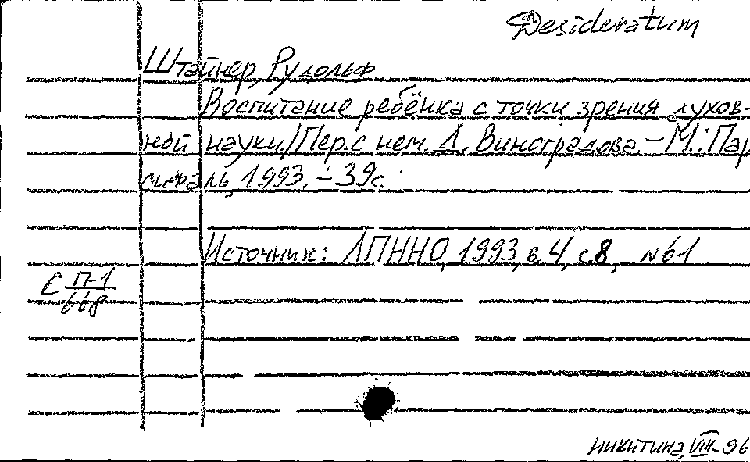 Desideratum
Штайнер, Рудольф
Воспитание ребёнка с точки зрения духов-
ной науки/Пер. с нем. Д. Виноградова.–М.: Пар
сифаль, 1993.–39с.
Источник: ЛПННО, 1993, в.4, с.8, №61
С П-1
668
Никитина, VIII-96